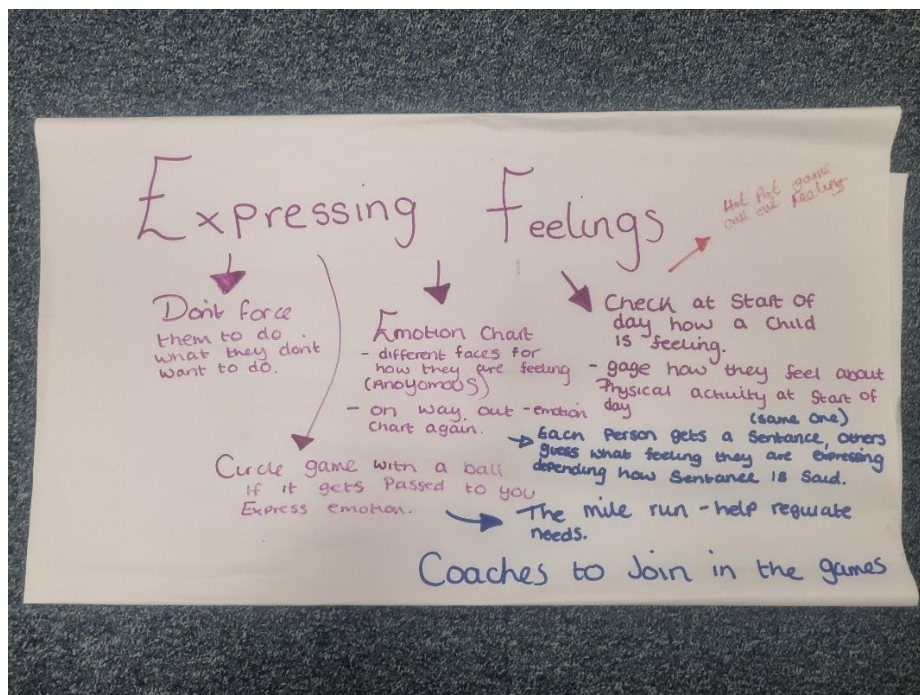 Expressing Feelings
Hot Pot game
call out feelings
Don't force
them to do
what they dont
want to do.
Emotion Chart
- different faces for
how they are feeling
(Anoyomous)
- on way out - emotion
chart again.
Check at Start of
day how a Child
is feeling.
- gage how they feel about
Physical activity at Start of
day
(same one)
Each Person gets a Sentence, others
guess what feeling they are expressing
depending how Sentence is Said.
Circle game with a ball
if it gets Passed to you
Express emotion.
The mile run - help regulate
needs.
Coaches to Join in the games